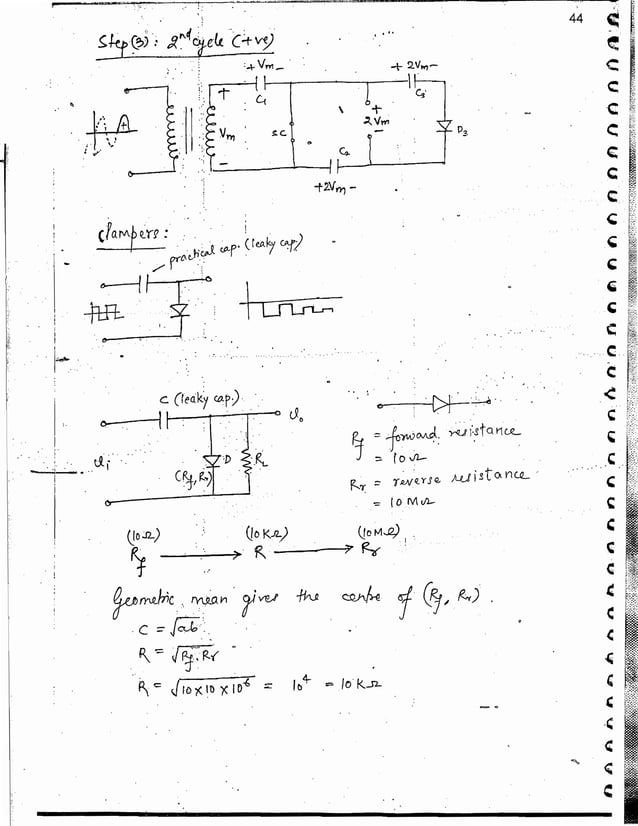 44
Step(3): 2nd cycle (+ve)
+ Vm -
+ 2Vm -
C1
C3
+
+
Vm
SC
2Vm
D3
-
-
C2
+2Vm -
Clampers:
practical cap. (leaky cap.)
C (leaky cap.)
vo
Rf = forward resistance
vi
D
RL
= 10Ω
(Rf, Rr)
Rr = reverse resistance
= 10 MΩ
(10Ω) (10KΩ) (10MΩ)
Rf → R → Rr
Geometric mean gives the centre of (Rf, Rr).
C = √ab
R = √Rf.Rr
R = √10×10×10⁶ = 10⁴ = 10KΩ